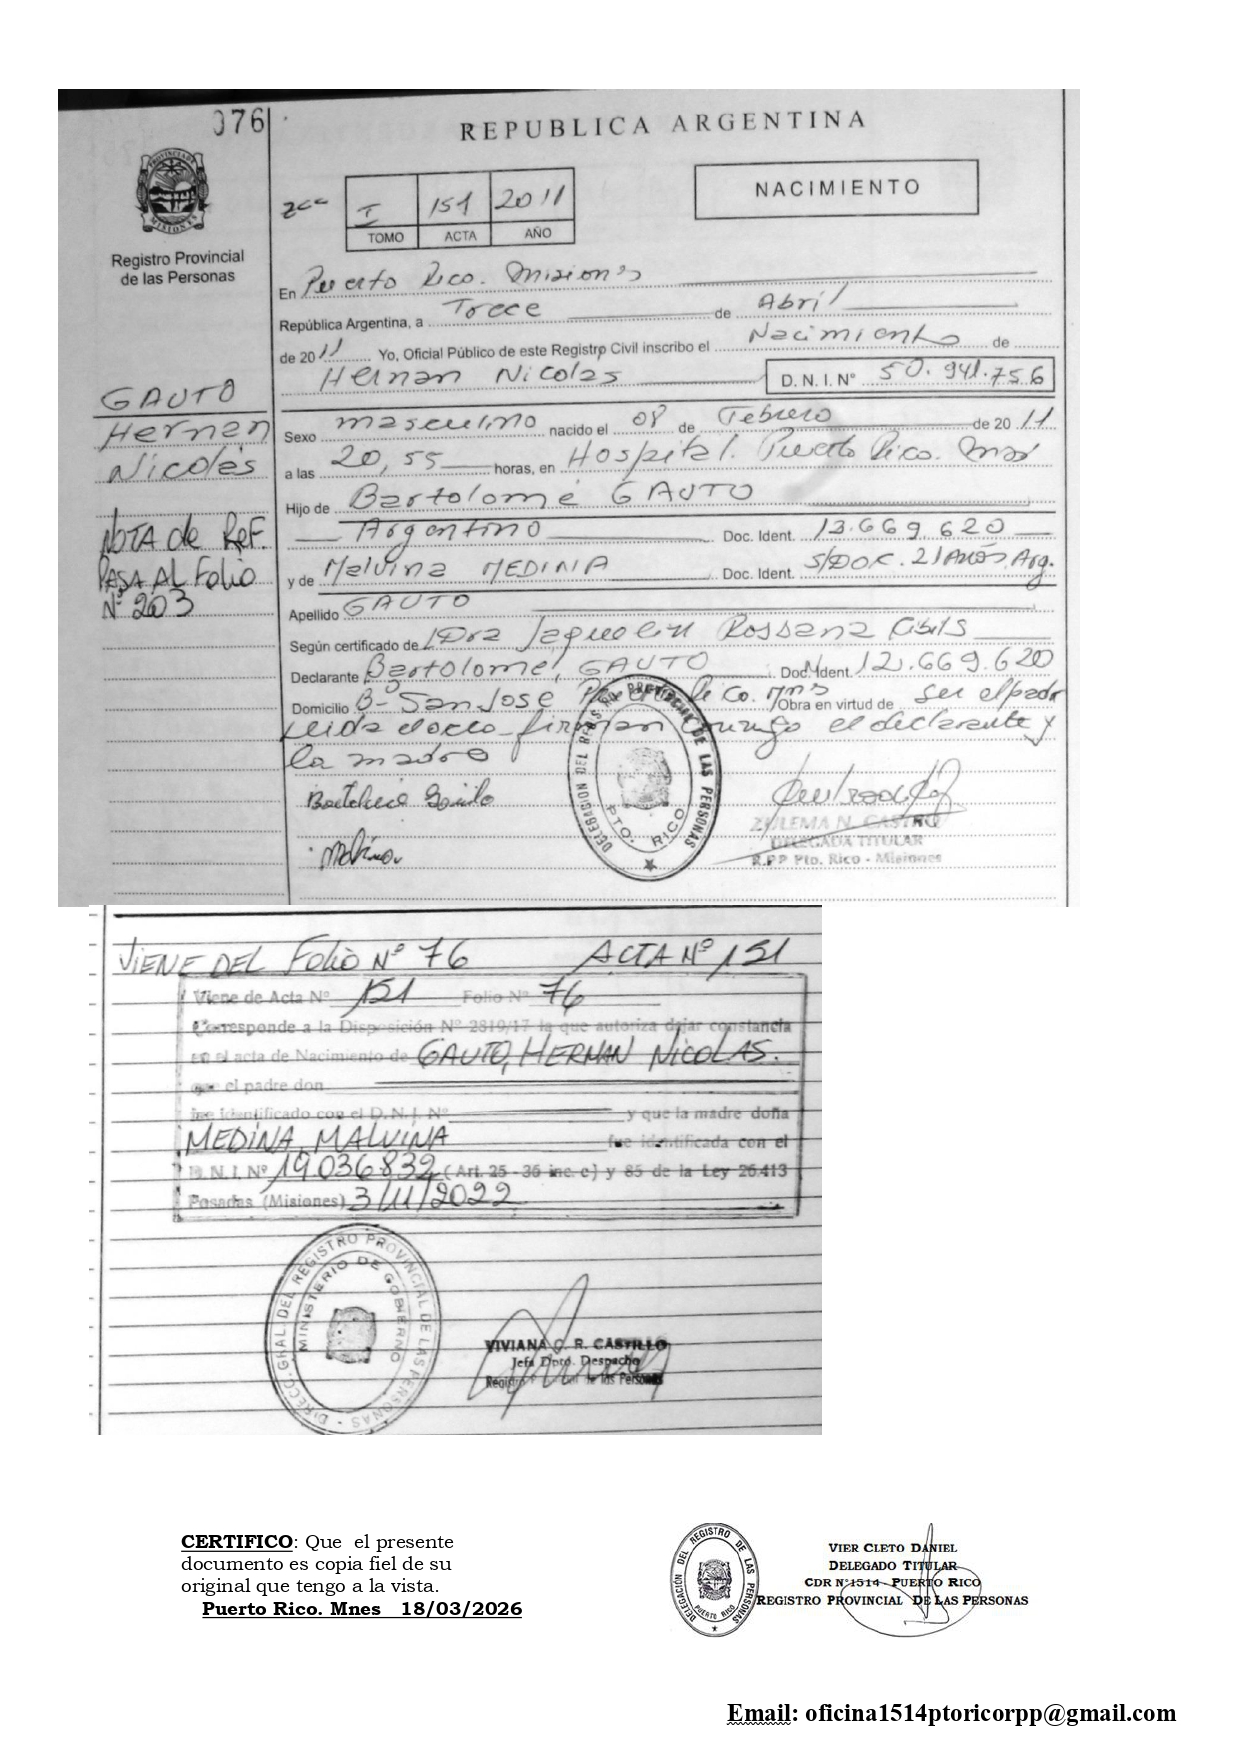 076
REPUBLICA ARGENTINA
NACIMIENTO
I 151 2011
TOMO ACTA AÑO
PROVINCIA DE MISIONES
Registro Provincial
de las Personas
En Puerto Rico. Misiones
República Argentina, a Trece de Abril
de 2011 Yo, Oficial Público de este Registro Civil inscribo el Nacimiento de
Hernan Nicolas D. N. I. N° 50.941.756
GAUTO
Hernan
Nicolás
NOTA de REF.
PASA AL FOLIO
N° 203
Sexo masculino nacido el 08 de Febrero de 2011
a las 20,55 horas, en Hospital. Puerto Rico. Mns
Hijo de Bartolomé GAUTO
Argentino Doc. Ident. 12.669.620
y de Malvina MEDINA Doc. Ident. S/DOC. 21 Años Arg.
Apellido GAUTO
Según certificado de Dra Jaquelin Rossana
Declarante Bartolomé, GAUTO Doc. Ident. 12.669.620
Domicilio B° San Jose Puerto Rico. Mns Obra en virtud de ser el padre
Leida el acta firman conmigo el declarante y
la madre
Malvina
DELEGACION DEL REGISTRO PROVINCIAL DE LAS PERSONAS
PTO. RICO
ZULEMA N. CASTRO
DELEGADA TITULAR
R.P.P Pto. Rico - Misiones
VIENE DEL FOLIO N° 76 ACTA N° 151
Viene de Acta N° 151 Folio N° 76
Corresponde a la Disposición N° 2819/17 la que autoriza dejar constancia
en el acta de Nacimiento de GAUTO, HERNAN NICOLAS.
que el padre don
fue identificado con el D. N. I. N° y que la madre doña
MEDINA, MALVINA fue identificada con el
D. N. I. N° 19.036.832 (Art. 25 - 36 inc. c) y 85 de la Ley 26.413
Posadas (Misiones) 3/11/2022
DIRECC. GRAL. DEL REGISTRO PROVINCIAL DE LAS PERSONAS
MINISTERIO DE GOBIERNO
VIVIANA C. R. CASTILLO
Jefa Dpto. Despacho
Registro Provincial de las Personas
CERTIFICO: Que el presente
documento es copia fiel de su
original que tengo a la vista.
Puerto Rico. Mnes 18/03/2026
DELEGACIÓN DEL REGISTRO DE LAS PERSONAS
PUERTO RICO
VIER CLETO DANIEL
DELEGADO TITULAR
CDR N°1514 - PUERTO RICO
REGISTRO PROVINCIAL DE LAS PERSONAS
Email: oficina1514ptoricorpp@gmail.com